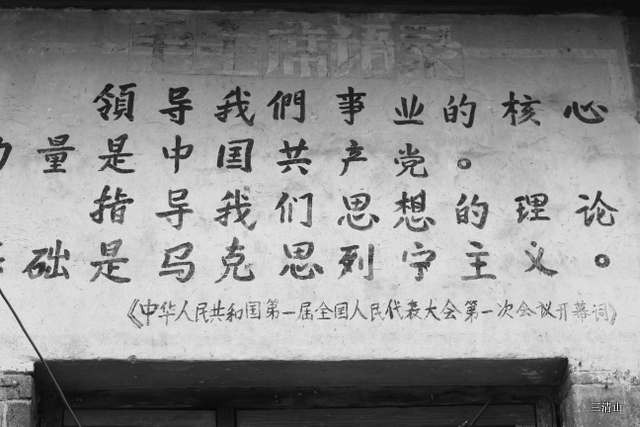 毛主席语录
領导我們事业的核心
力量是中国共产党。
指导我们思想的理论
基础是马克思列宁主义。
《中华人民共和国第一届全国人民代表大会第一次会议开幕词》
三清山